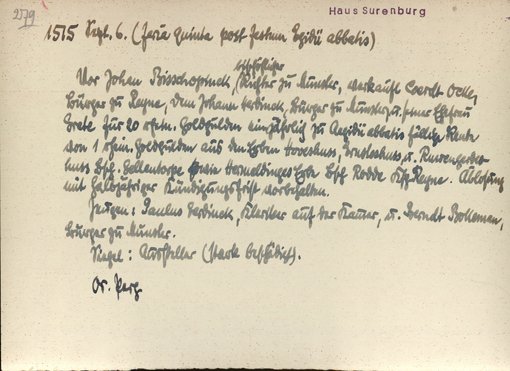 2579
Haus Surenburg
1515 Sept. 6. (Feria quinta post festum Egidii abbatis)
bischöfliger
Vor Johan Bisschopinck, Richter zu Munster, verkauft Coerdt Ocke,
Bürger zu Reyne, dem Johann Gerdinck, Bürger zu Munster u. seiner Ehefrau
Grete für 20 rhein. Goldgulden ein jährlich zu Aegidii abbatis fällige Rente
von 1 rhein. Goldgulden aus den Erben Hoveshus, u.
hus Bsch. Gellentorpe sowie Hermeldinges Erbe Bsch. Rodde Ksp. Reyne. Ablösung
mit halbjähriger Kündigungsfrist vorbehalten.
Zeugen: Paulus Gerdinck, Kleriker auf der Kamer, u. Berndt
Bürger zu Munster.
Siegel: Aussteller (stark beschädigt).
Or. Perg.